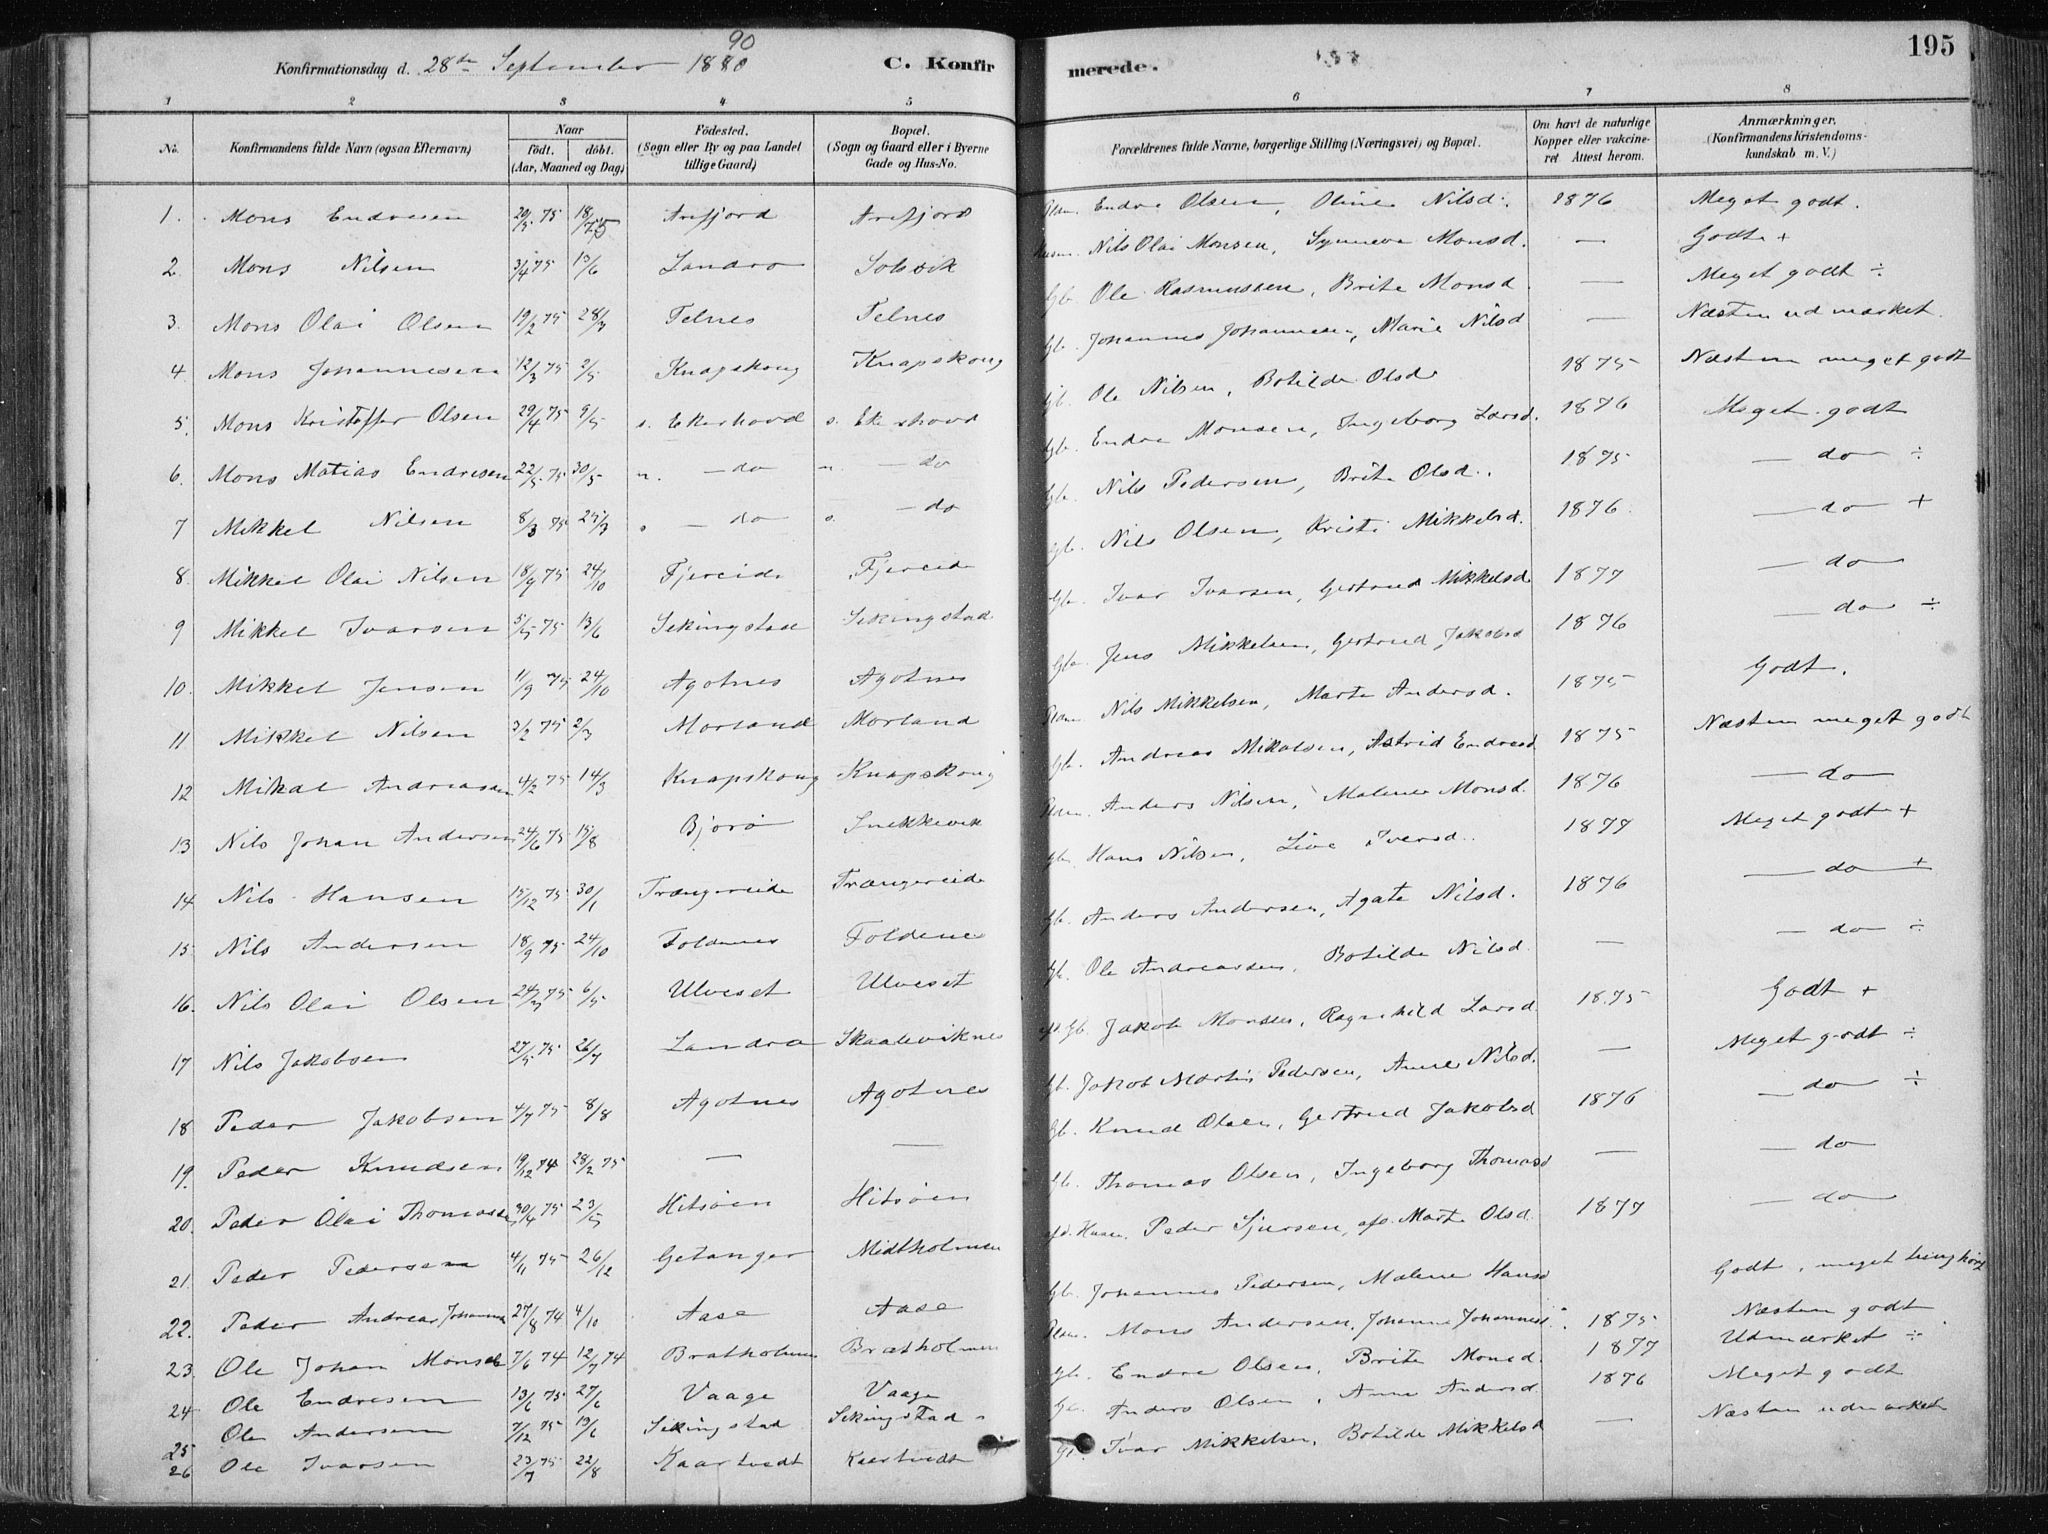 195
Konfirmationsdag d. 28de September 1880 90 C. Konfirmerede.
1 2 3 4 5 6 7 8
No. Konfirmandens fulde Navn (ogsaa Efternavn) Naar födt. döbt. (Aar, Maaned og Dag) Födested. (Sogn eller By og paa Landet tillige Gaard) Bopæl. (Sogn og Gaard eller i Byerne Gade og Hus-No. Forældrenes fulde Navne, borgerlige Stilling (Næringsvei) og Bopæl. Om havt de naturlige Kopper eller vakcineret Attest herom. Anmærkninger. (Konfirmandens Kristendomskundskab m. V.)
1. Mons Endresen 20/5 75 18/7 75 Arefjord Arefjord Endre Olsen, Oline Nilsd. 1876 Meget godt.
2. Mons Nilsen 3/4 75 13/6 Landro Solsvik Husm. Nils Olai Monsen, Synneva Monsd. — Godt +
3. Mons Olai Olsen 19/2 75 28/3 Telnes Telnes Gb. Ole Rasmussen, Brite Monsd — Meget godt ÷
4. Mons Johannesen 12/3 75 2/5 Knapskong Knapskong Gb. Johannes Johannesen, Marie Nilsd — Næsten udmærket.
5. Mons Kristoffer Olsen 29/4 75 9/5 s. Ekerhovd s. Ekerhovd Gb. Ole Nilsen, Botilde Olsd 1875 Næsten meget godt
6. Mons Matias Endresen 22/5 75 30/5 " — do " — do Gb. Endre Monsen, Ingeborg Larsd. 1876 Meget godt
7 Mikkel Nilsen 8/3 75 29/3 s — do s. — do Gb. Nils Pedersen, Brite Olsd. 1875 — do ÷
8. Mikkel Olai Nilsen 18/9 75 24/10 Fjereide Fjereide Gb. Nils Olsen, Kristi Mikkelsd. 1876. — do +
9 Mikkel Ivarsen 5/5 75 13/6 Sekingstad Sekingstad Gb. Ivar Ivarsen, Gertrud Mikkelsd 1877 — do
10. Mikkel Jensen 11/9 75 24/10 Agotnes Agotnes Gb. Jens Mikkelsen, Gertrud Jakobsd 1876 — do ÷
11 Mikkel Nilsen 3/2 75 2/3 Morland Morland Nils Mikkelsen, Marte Andersd. 1875 Godt.
12 Mikal Andreassen 4/2 75 14/3 Knapskong Knapskong Gb. Andreas Mikalsen, Astrid Endresd 1875 Næsten meget godt
13 Nils Johan Andersen 24/6 75 15/8 Bjorö Snekkevik Anders Nilsen, Malene Monsd. 1876 — do
14 Nils Hansen 15/12 75 30/1 Trængereide Trængereide Gb. Hans Nilsen, Live Iversd. 1877 Meget godt +
15 Nils Andersen 18/9 75 24/10 Foldnes Foldnes Gb. Anders Andersen, Agate Nilsd. 1876 — do +
16. Nils Olai Olsen 24/3 75 6/5 Ulveset Ulveset Gb. Ole Andreassen, Botilde Nilsd — — do ÷
17 Nils Jakobsen 27/5 75 26/7 Landro Skaaleviknes Gb. Jakob Monsen, Ragnhild Larsd 1875 Godt +
18 Peder Jakobsen 4/7 75 8/8 Agotnes Agotnes Gb. Jakob Martin Pedersen, Anne Nilsd. — Meget godt ÷
19. Peder Knudsen 19/12 74 28/2 75 — — Gb. Knud Olsen, Gertrud Jakobsd 1876 — do ÷
20. Peder Olai Thomassen 30/4 75 23/5 Hitsöen Hitsöen Gb. Thomas Olsen, Ingeborg Thomasd — — do
21. Peder Pedersen 4/11 75 26/12 Getanger Midtholmen Peder Sjursen, Marte Olsd. 1877 — do
22. Peder Andreas Johannes 27/8 74 4/10 Aase Aase Gb. Johannes Pedersen, Malene Hansd Godt, meget
23. Ole Johan Monsen 7/6 74 12/7 74 Bratholmen Bratholmen Mons Andersen, Johanne Johannesd. 1875 Næsten godt
24 Ole Endresen 13/6 75 27/6 Vaage Vaage Gb. Endre Olsen, Brite Monsd. 1877 Udmærket ÷
25 Ole Andersen 7/12 75 19/6 Sekingstad Sekingstad Gb. Anders Olsen, Anne Andersd 1876 Meget godt
26 Ole Ivarsen 23/7 75 22/8 Kaartvedt Kaartvedt Gb. Ivar Mikkelsen, Botilde Mikkelsd — Næsten udmærket